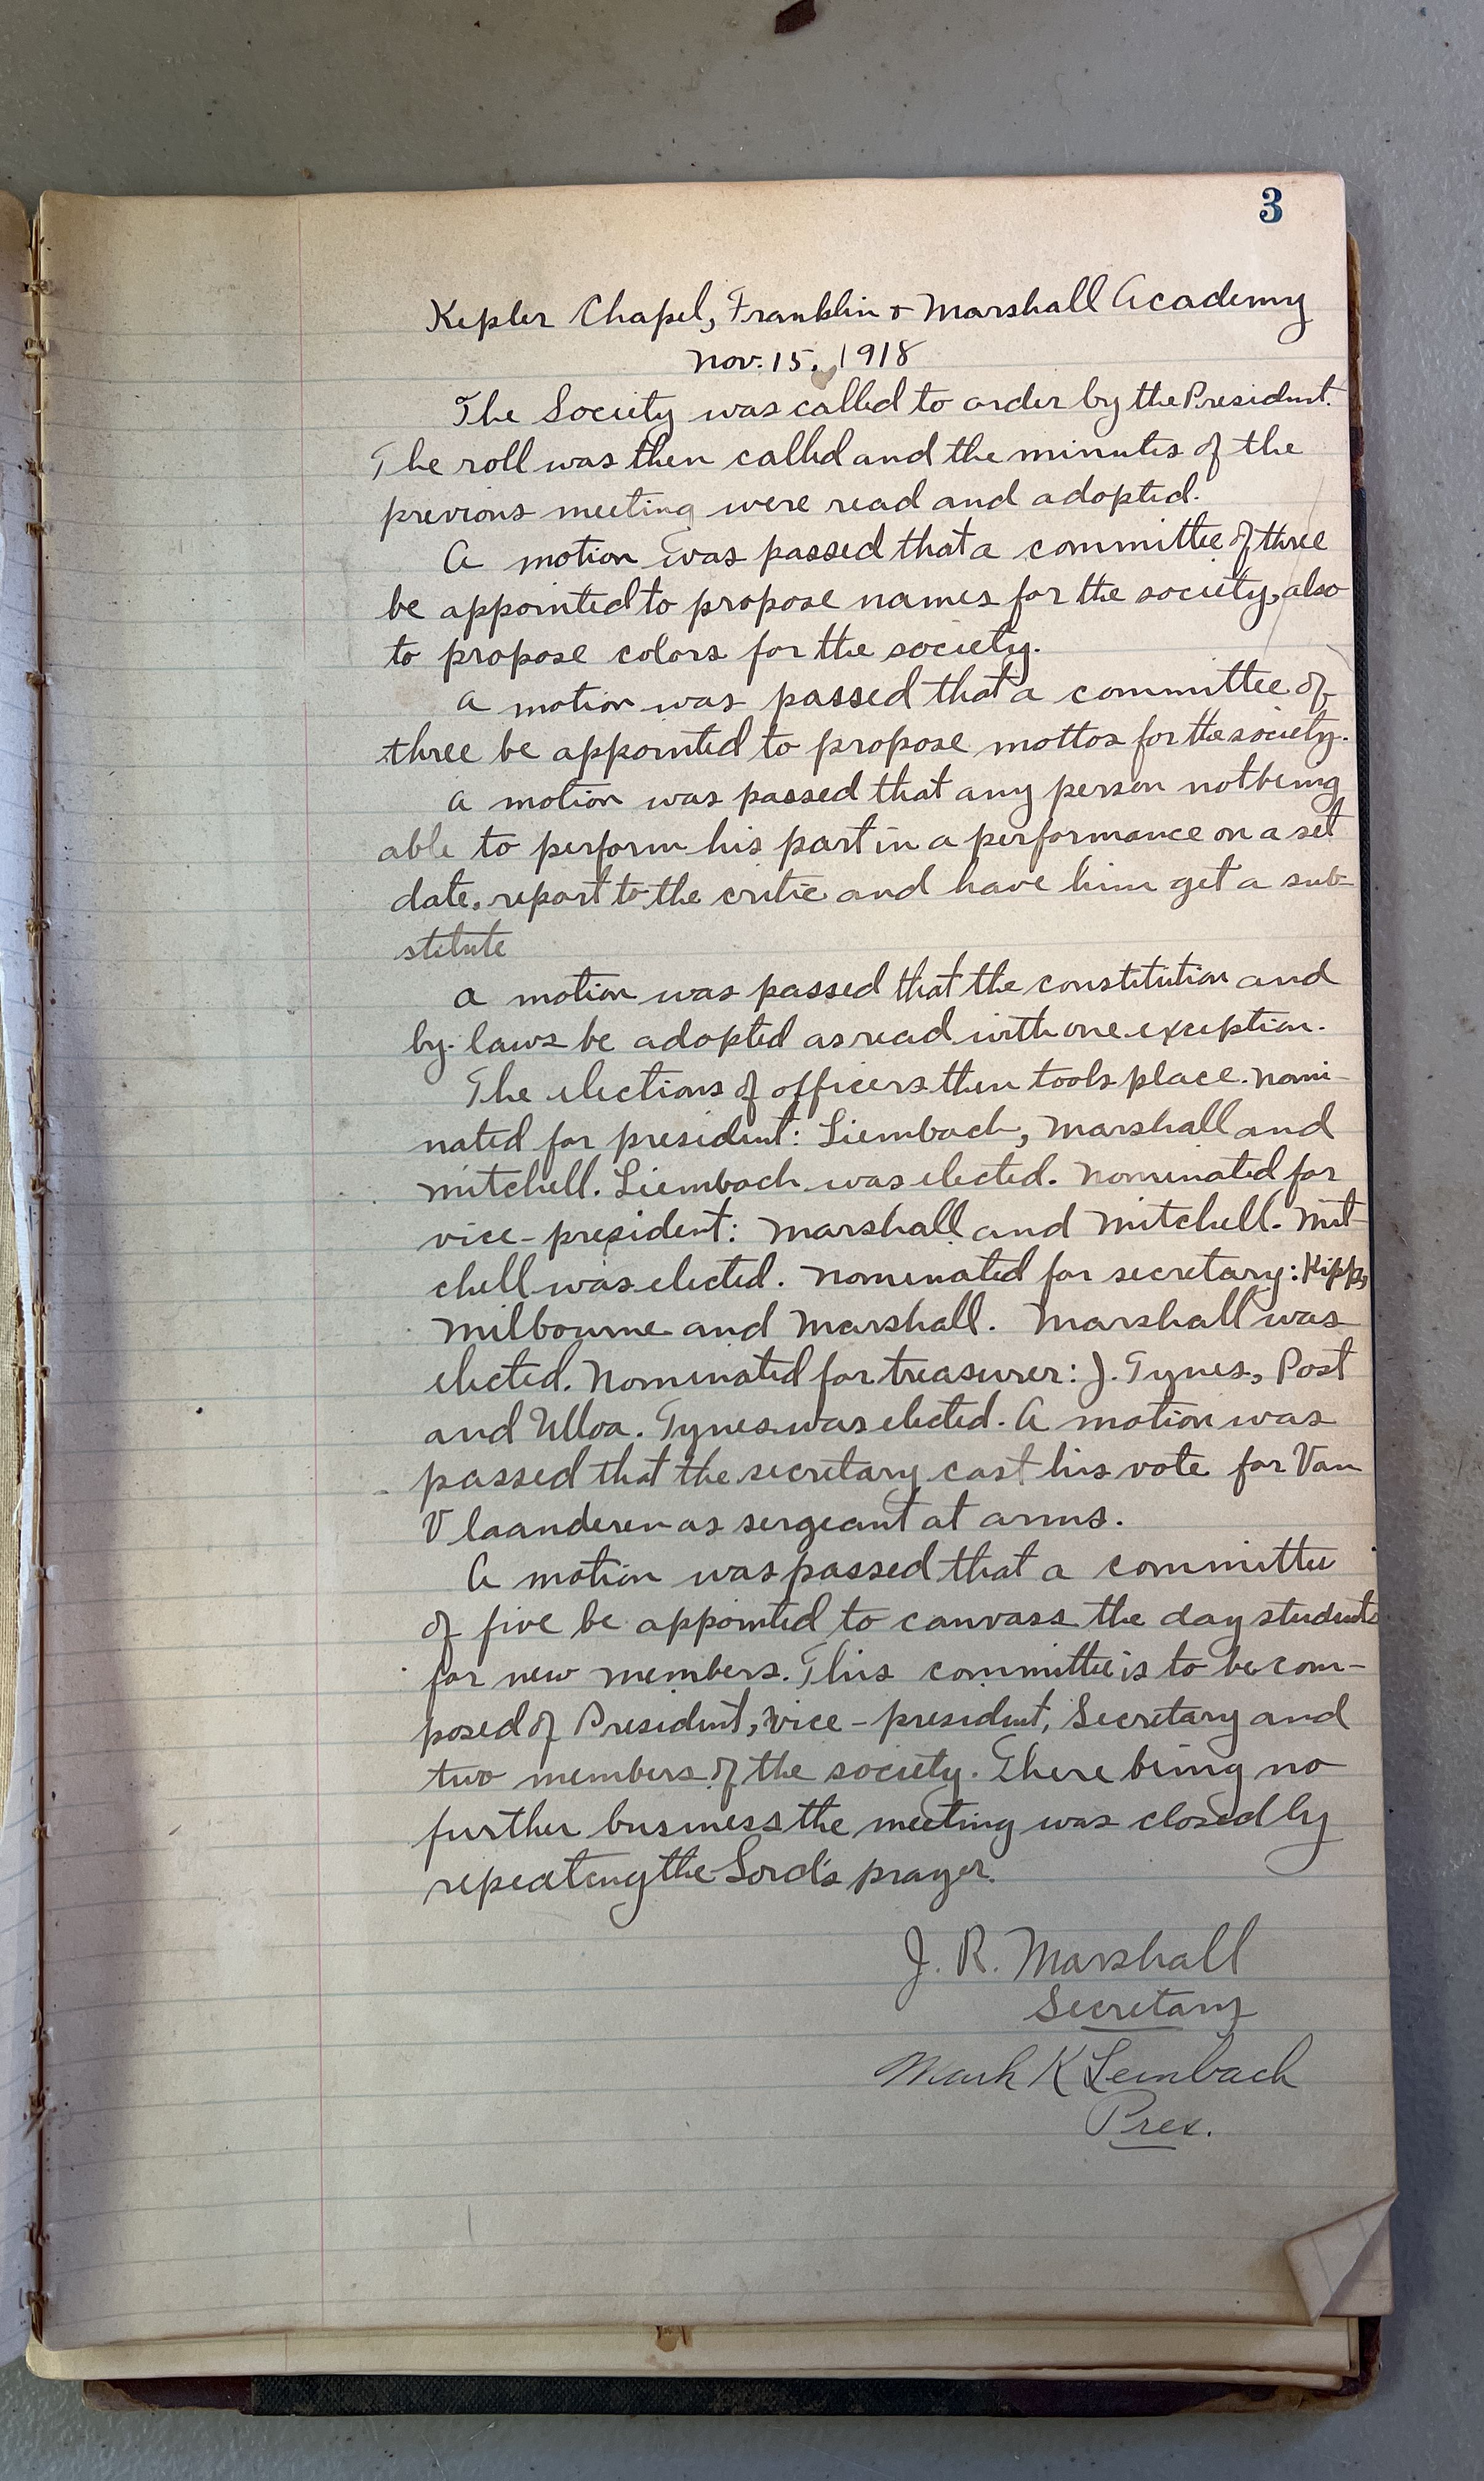 3
Kepler Chapel, Franklin & Marshall Academy
Nov. 15, 1918
The Society was called to order by the President.
The roll was then called and the minutes of the
previous meeting were read and adopted.
A motion was passed that a committee of three
be appointed to propose names for the society, also
to propose colors for the society.
A motion was passed that a committee of
three be appointed to propose mottos for the society.
A motion was passed that any person not being
able to perform his part in a performance on a set
date, report to the critic and have him get a sub-
stitute
A motion was passed that the constitution and
by-laws be adopted as read with one exception.
The elections of officers then took place. Nomi-
nated for president: Liembach, Marshall and
Mitchell. Liembach was elected. Nominated for
vice-president: Marshall and Mitchell. Mit-
chell was elected. Nominated for secretary: Kipp,
Milbourne and Marshall. Marshall was
elected. Nominated for treasurer: J. Tynes, Post
and Ulloa. Tynes was elected. A motion was
passed that the secretary cast his vote for Van
Vlaanderen as sergeant at arms.
A motion was passed that a committee
of five be appointed to canvass the day students
for new members. This committee is to be com-
posed of President, vice-president, Secretary and
two members of the society. There being no
further business the meeting was closed by
repeating the Lord's prayer.
J. R. Marshall
Secretary
Mark K Leinbach
Pres.